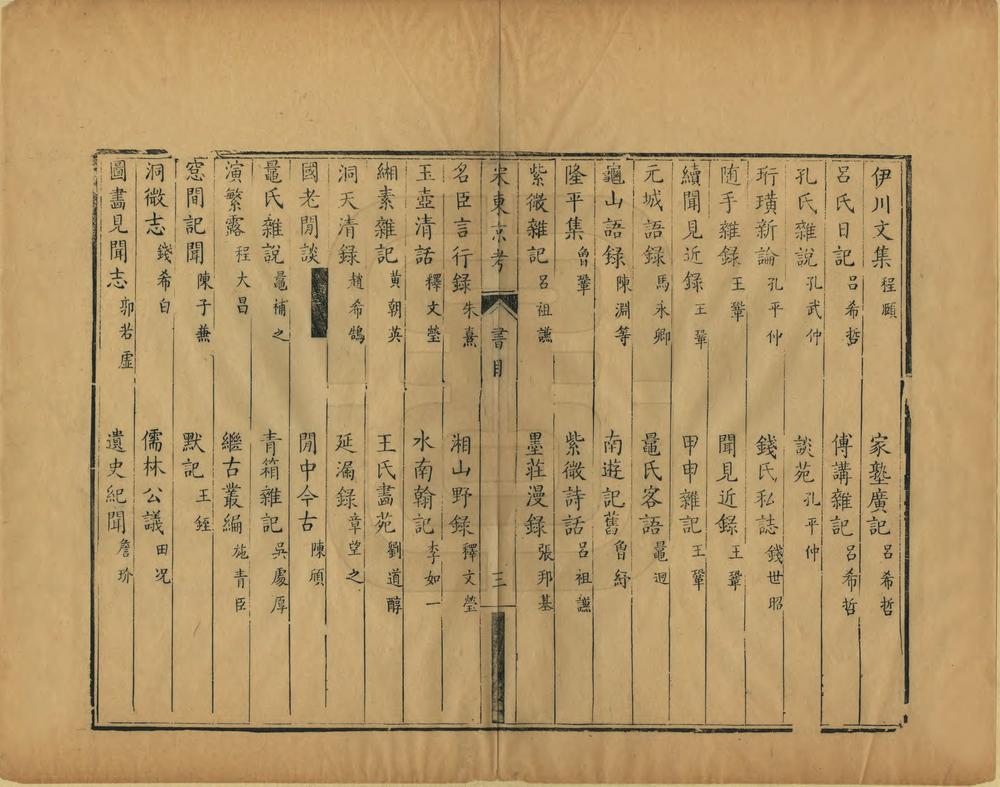 伊川文集 程頤 家塾廣記 呂希哲
呂氏日記 呂希哲 傳講雜記 呂希哲
孔氏雜說 孔武仲 談苑 孔平仲
珩璜新論 孔平仲 錢氏私誌 錢世昭
随手雜錄 王鞏 聞見近録 王鞏
續聞見近録 王鞏 甲申雜記 王鞏
元城語録 馬永卿 鼂氏客語 鼂迥
龜山語録 陳淵等 南遊記舊 魯紆
隆平集 魯鞏 紫微詩話 呂祖謙
紫微雜記 呂祖謙 墨莊漫録 張邦基
宋東京考 書目 三
名臣言行録 朱熹 湘山野録 釋文瑩
玉壺清話 釋文瑩 水南翰記 李如一
緗素雜記 黄朝英 王氏畵苑 劉道醇
洞天清録 趙希鵠 延漏録 章望之
國老閒談 閒中今古 陳頎
鼂氏雜說 鼂補之 青箱雜記 吳處厚
演繁露 程大昌 繼古叢編 施青臣
窓間記聞 陳子兼 默記 王銍
洞微志 錢希白 儒林公議 田况
圖畵見聞志 郭若虛 遺史紀聞 詹玠